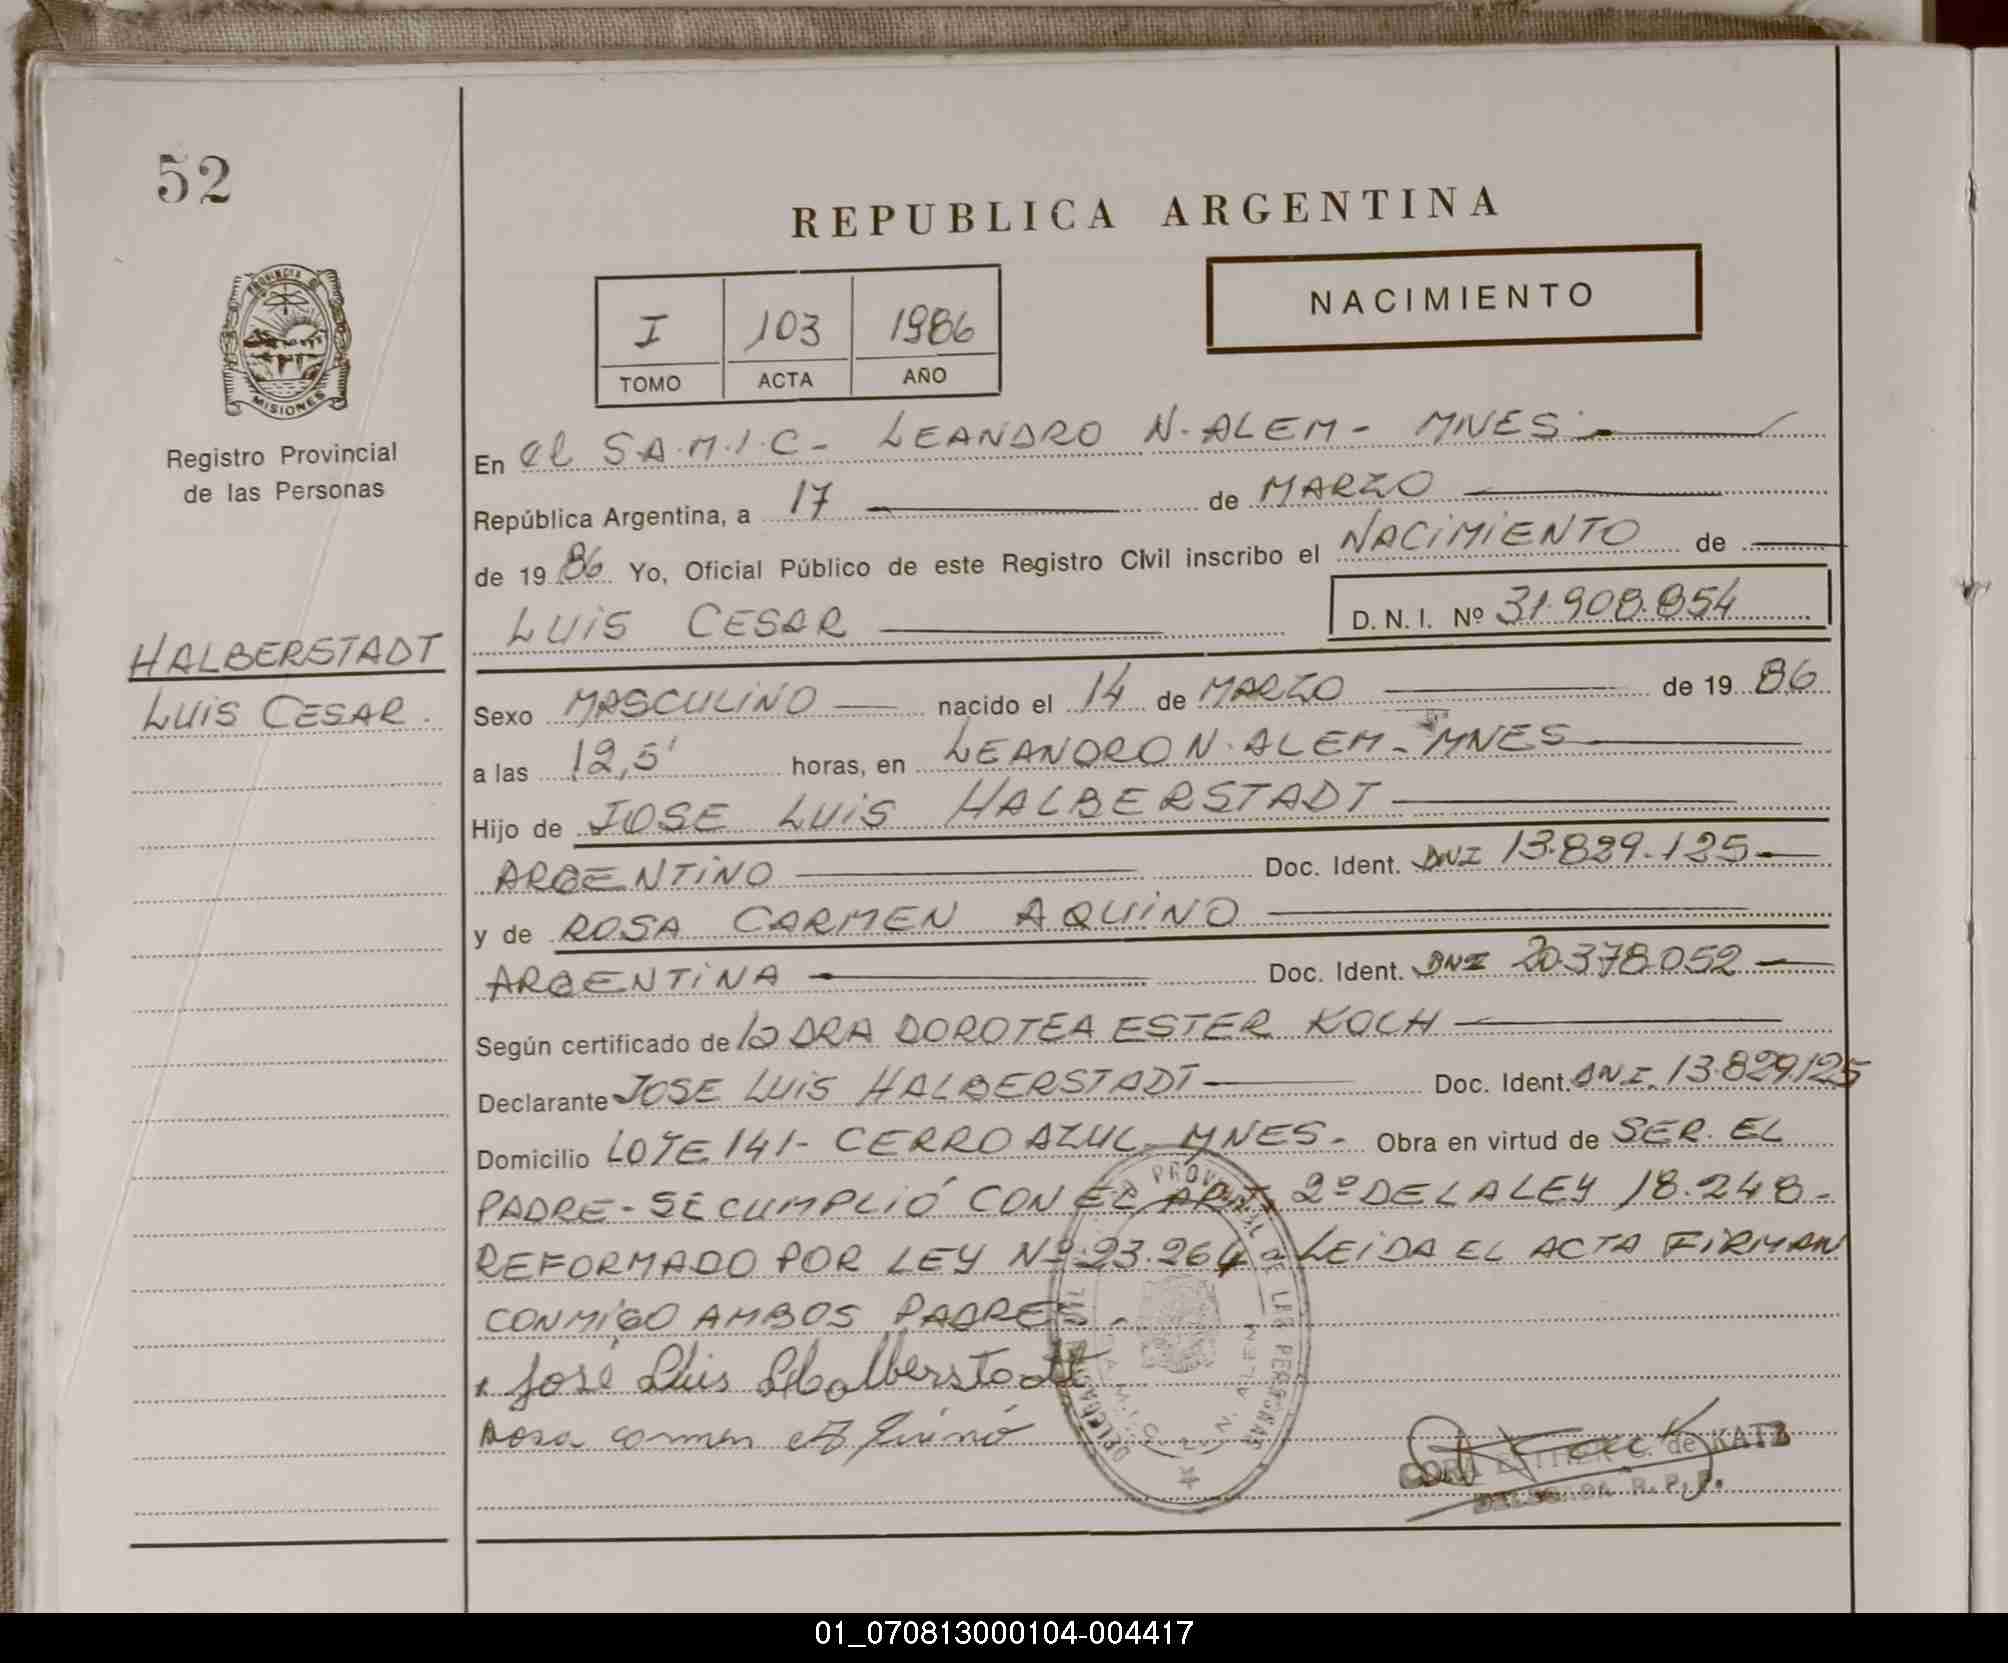 52
REPUBLICA ARGENTINA
NACIMIENTO
I 103 1986
TOMO ACTA AÑO
PROVINCIA DE
MISIONES
Registro Provincial
de las Personas
HALBERSTADT
LUIS CESAR.
En el S.A.M.I.C - LEANDRO N. ALEM - MNES
República Argentina, a 17 de MARZO
de 19 86 Yo, Oficial Público de este Registro Civil inscribo el NACIMIENTO de
LUIS CESAR D. N. I. Nº 31.908.854
Sexo MASCULINO nacido el 14 de MARZO de 19 86
a las 12,5' horas, en LEANDRO N. ALEM - MNES
Hijo de JOSE LUIS HALBERSTADT
ARGENTINO Doc. Ident. DNI 13.829.125
y de ROSA CARMEN AQUINO
ARGENTINA Doc. Ident. DNI 20.378.052
Según certificado de la DRA DOROTEA ESTER KOCH
Declarante JOSE LUIS HALBERSTADT Doc. Ident. DNI. 13.829.125
Domicilio LOTE 141 - CERRO AZUL - MNES. Obra en virtud de SER EL
PADRE - SE CUMPLIÓ CON EL ART. 2º DE LA LEY 18.248 -
REFORMADO POR LEY Nº 23.264 - LEIDA EL ACTA FIRMAN
CONMIGO AMBOS PADRES -
José Luis Halberstadt
Rosa Carmen Aquino
PROVINCIAL DE LAS PERSONAS
N. ALEM
de KATZ
R. P. P.
01_070813000104-004417